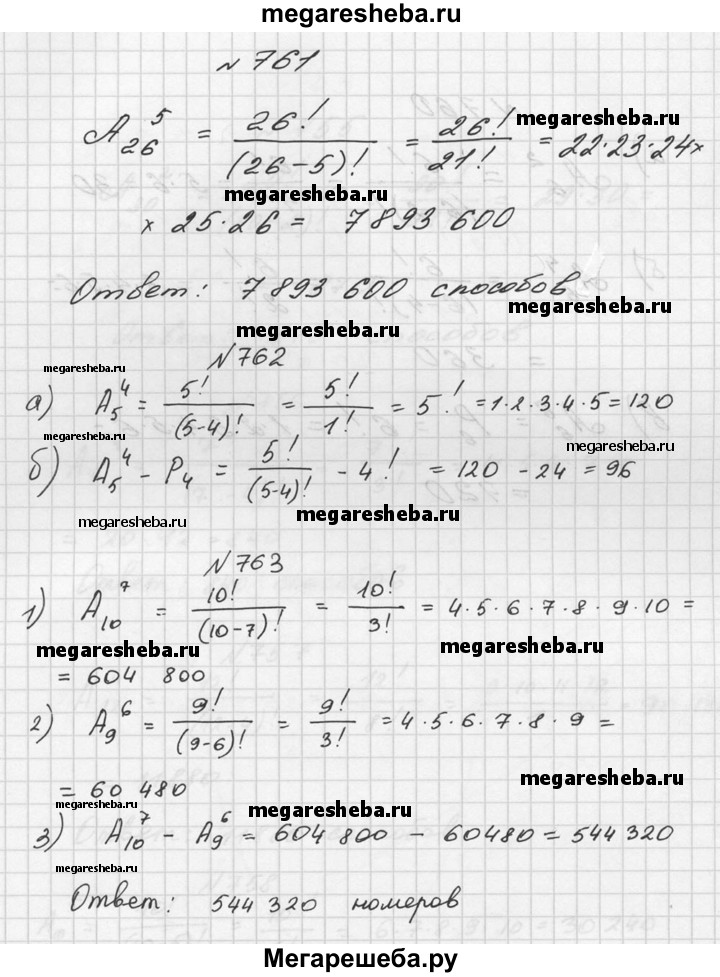 megaresheba.ru
№ 761
A₂₆⁵ = 26!/(26-5)! = 26!/21! = 22·23·24×
megaresheba.ru
megaresheba.ru
× 25·26 = 7893 600
Ответ: 7 893 600 способов
megaresheba.ru
megaresheba.ru
№ 762
megaresheba.ru
а) A₅⁴ = 5!/(5-4)! = 5!/1! = 5! = 1·2·3·4·5 = 120
megaresheba.ru
megaresheba.ru
б) A₅⁴ - P₄ = 5!/(5-4)! - 4! = 120 - 24 = 96
megaresheba.ru
megaresheba.ru
№ 763
1) A₁₀⁷ = 10!/(10-7)! = 10!/3! = 4·5·6·7·8·9·10 =
megaresheba.ru
megaresheba.ru
= 604 800
2) A₉⁶ = 9!/(9-6)! = 9!/3! = 4·5·6·7·8·9 =
megaresheba.ru
= 60 480
megaresheba.ru
megaresheba.ru
3) A₁₀⁷ - A₉⁶ = 604 800 - 60480 = 544 320
megaresheba.ru
Ответ: 544 320 номеров
Мегарешеба.ру